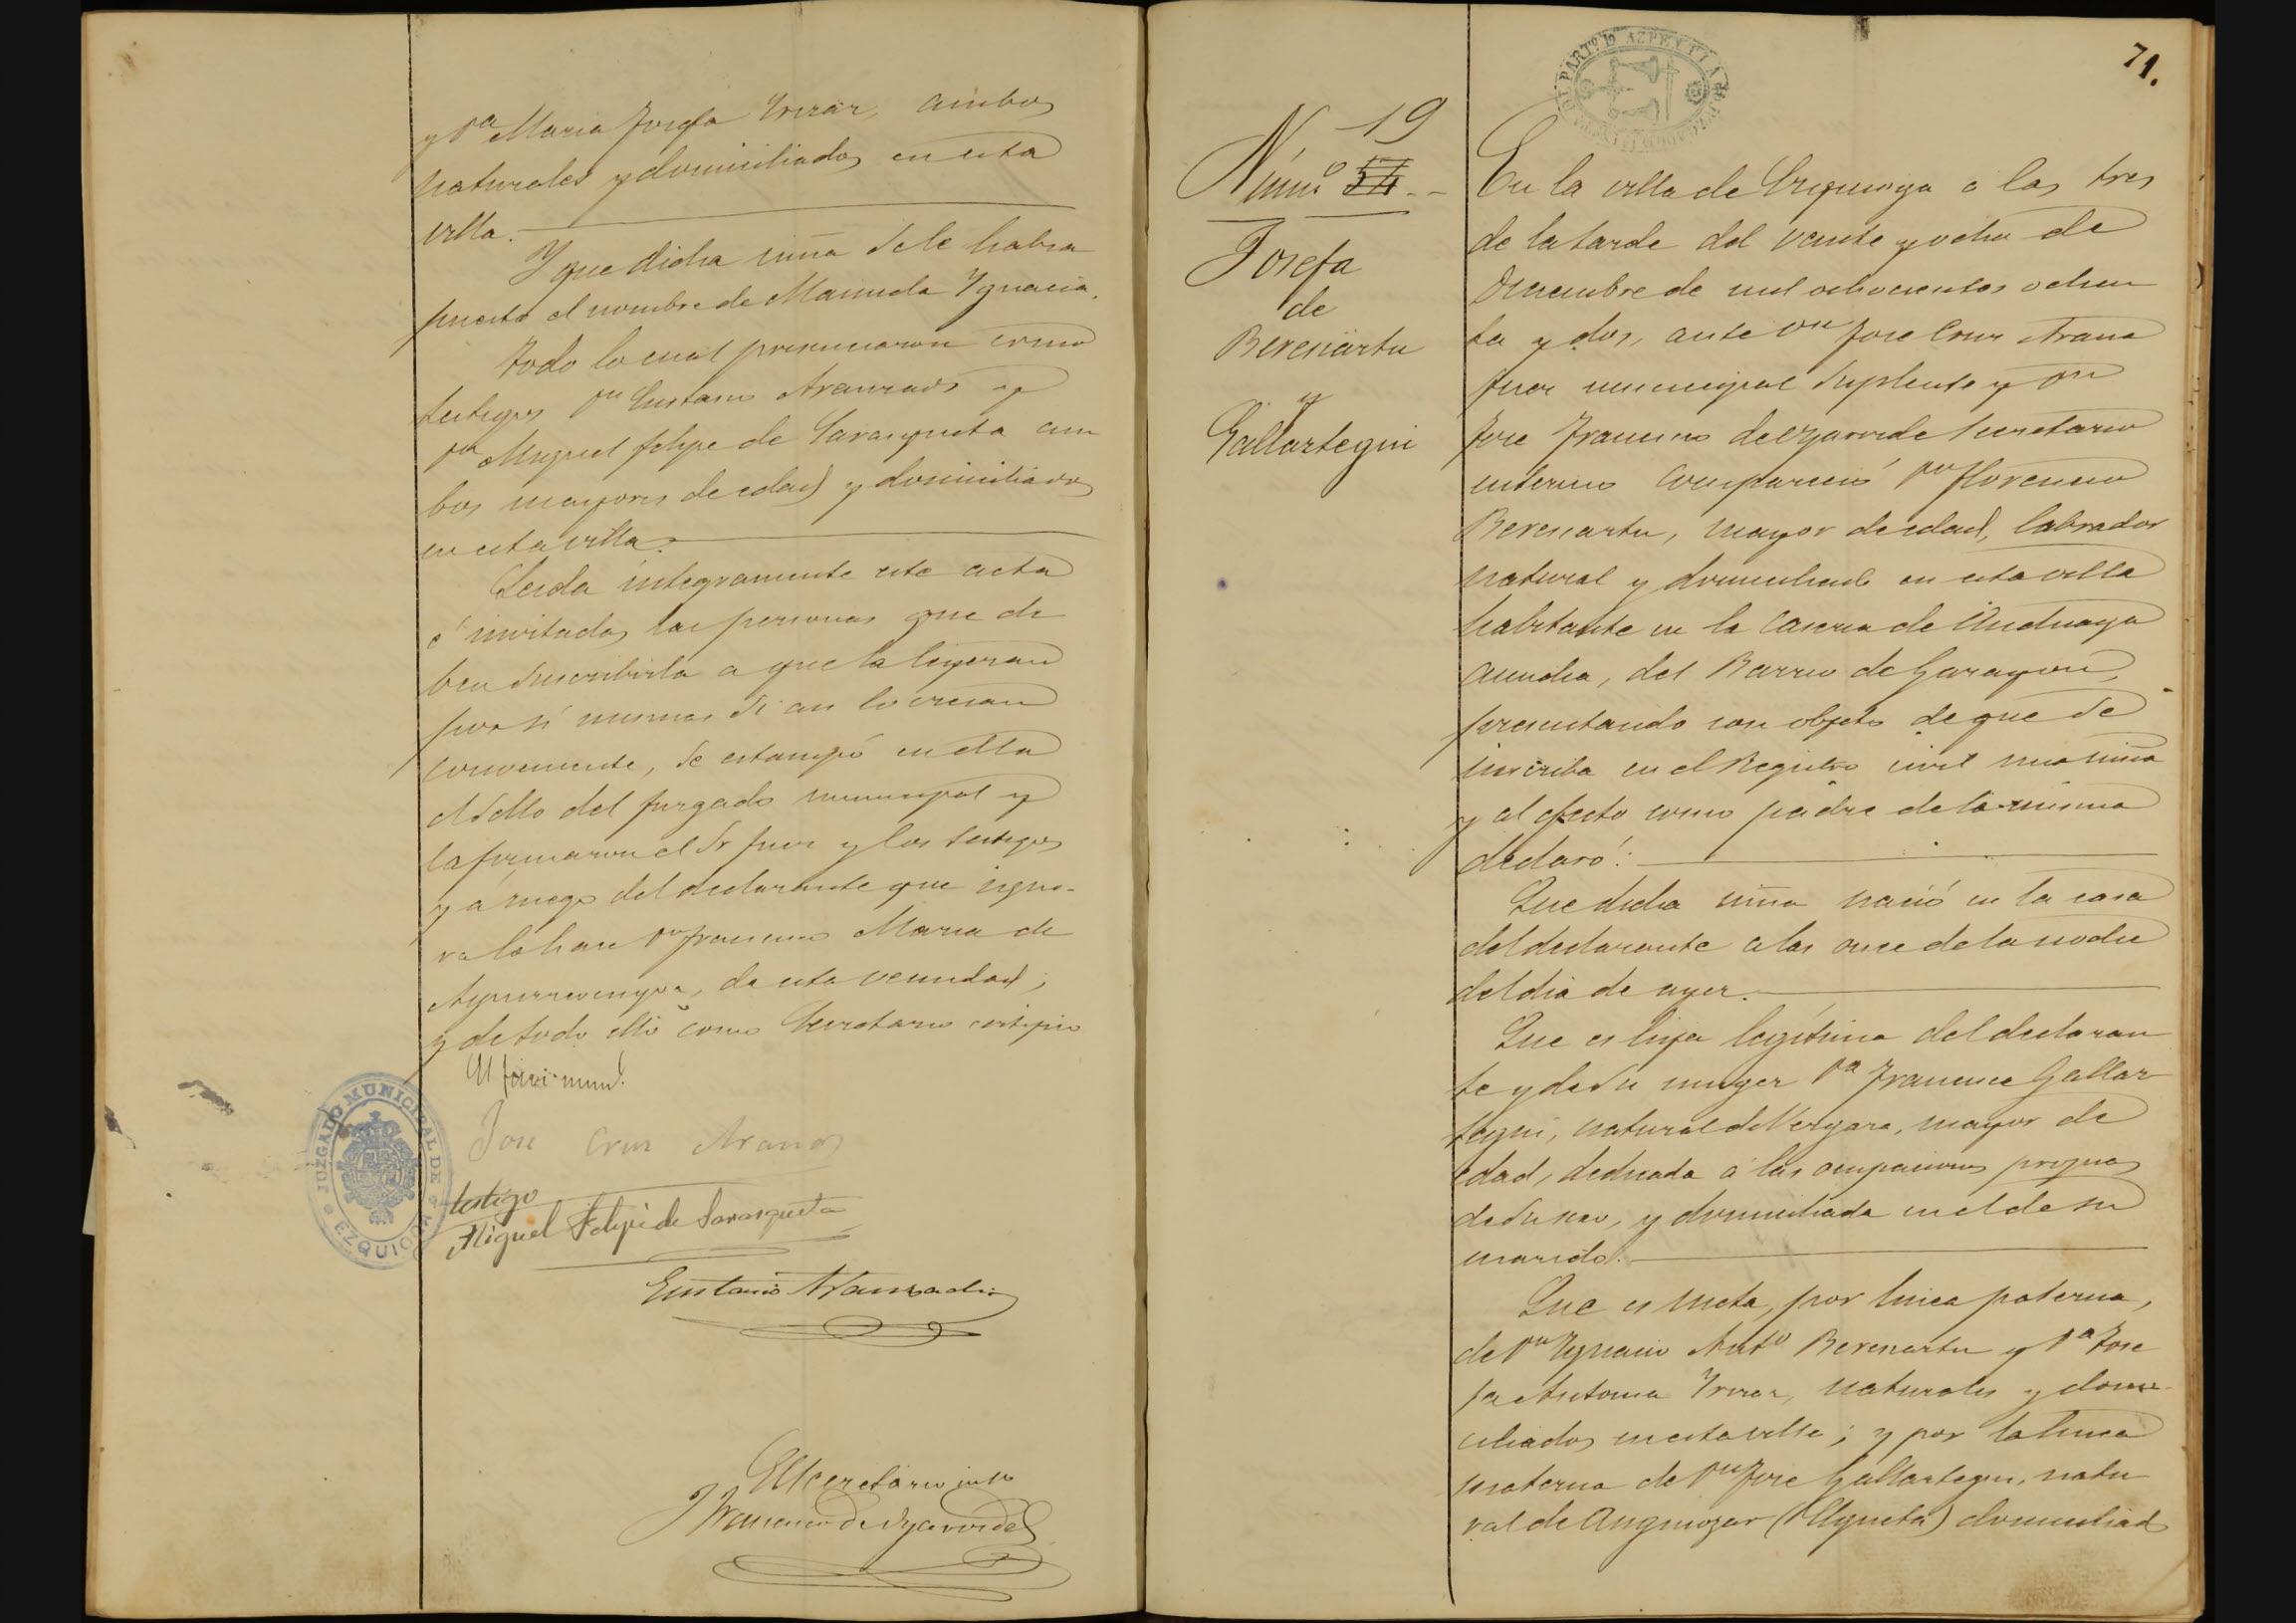 y Dª Maria Josefa Yrizar, ambos
naturales y domiciliados en esta
villa.
Y que dicha niña se le habia
puesto el nombre de Manuela Ygnacia.
Todo lo cual presenciaron como
testigos Dn Eustasio Aranzadi y
Dn Miguel Felipe de Sarasqueta am
bos mayores de edad y domiciliados
en esta villa.
Leida integramente este acta
é invitadas las personas que de
ben suscribirla a que la leyeran
por sí mismas si asi lo creian
conveniente, se estampó en ella
el sello del juzgado municipal y
la firmaron el Sr Juez y los testigos
y á ruego del declarante que igno-
ra lo hace Dn Francisco Maria de
de esta vecindad,
y de todo ello como Secretario certifico
El Juez mun.l
Jose Cruz Arana
testigo
Miguel Felipe de Sarasqueta
Eustasio Aranzadi
El Secretario int.o
J Francisco de Oyarvide
JUZGADO MUNICIPAL DE EZQUIOGA
71.
PARTº Jº AZPEITIA
Núm.º 19 54
Josefa
de
Berenartu
y
Gallartegui
En la villa de Ezquioga a las tres
de la tarde del veinte y ocho de
Diciembre de mil ochocientos ochen
ta y dos, ante Dn Jose Cruz Arana
Juez municipal Suplente y Dn
Jose Francisco de Oyarvide Secretario
interino compareció Dn Florencio
Berenartu, mayor de edad, labrador
natural y domiciliado en esta villa
habitante en la caseria de Anduaga
aundia, del Barrio de
presentando con objeto de que se
inscriba en el Registro civil una niña
y al efecto como padre de la misma
declaró:
Que dicha niña nació en la casa
del declarante a las once de la noche
del dia de ayer.
Que es hija legítima del declaran
te y de su muger Dª Francisca Gallar
tegui, natural de Vergara, mayor de
edad, dedicada á las ocupaciones propias
de su sexo, y domiciliada en el de su
marido.
Que es nieta, por linea paterna,
de Dn Ygnacio Antº Berenartu y Dª Jose
fa Antonia Yrizar, naturales y domi-
ciliados en esta villa; y por la linea
materna de Dn Jose Gallartegui, natu
ral de Anguiozar (Elgueta) domiciliado